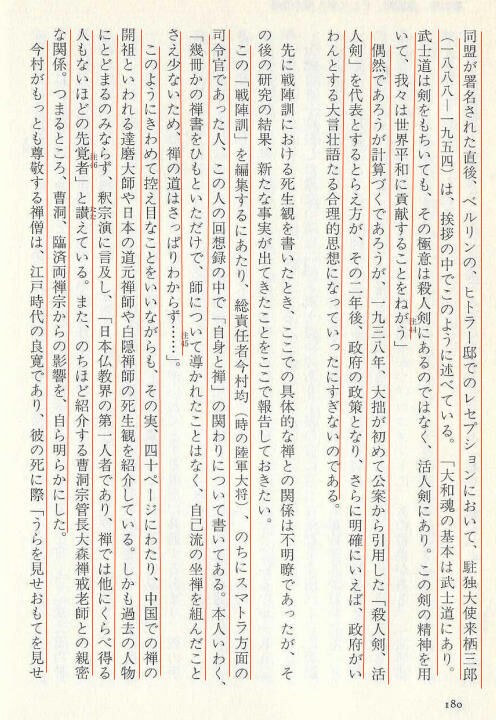 同盟が署名された直後、ベルリンの、ヒトラー邸でのレセプションにおいて、駐独大使来栖三郎
(一八八八―一九五四)は、挨拶の中でこのように述べている。「大和魂の基本は武士道にあり。
武士道は剣をもちいても、その極意は殺人剣にあるのではなく、活人剣にあり。この剣の精神を用
いて、我々は世界平和に貢献することをねがう」注44
偶然であろうが計算づくであろうが、一九三八年、大拙が初めて公案から引用した「殺人剣、活
人剣」を代表とするとらえ方が、その二年後、政府の政策となり、さらに明確にいえば、政府がい
わんとする大言壮語たる合理的思想になっていったにすぎないのである。
先に戦陣訓における死生観を書いたとき、ここでの具体的な禅との関係は不明瞭であったが、そ
の後の研究の結果、新たな事実が出てきたことをここで報告しておきたい。
この「戦陣訓」を編集するにあたり、総責任者今村均(時の陸軍大将)、のちにスマトラ方面の
司令官であった人、この人の回想録の中で「自身と禅」の関わりについて書いてある。本人いわく、
「幾冊かの禅書をひもといただけで、師について導かれたことはなく、自己流の坐禅を組んだこと
さえ少ないため、禅の道はさっぱりわからず……」注45。
このようにきわめて控え目なことをいいながらも、その実、四十ページにわたり、中国での禅の
開祖といわれる達磨大師や日本の道元禅師や白隠禅師の死生観を紹介している。しかも過去の人物
にとどまるのみならず、釈宗演に言及し、「日本仏教界の第一人者であり、禅では他にくらべ得る
人もないほどの先覚者」注46と讃えている。また、のちほど紹介する曹洞宗管長大森禅戒老師との親密
な関係。つまるところ、曹洞、臨済両禅宗からの影響を、自ら明らかにした。
今村がもっとも尊敬する禅僧は、江戸時代の良寛であり、彼の死に際「うらを見せおもてを見せ
180